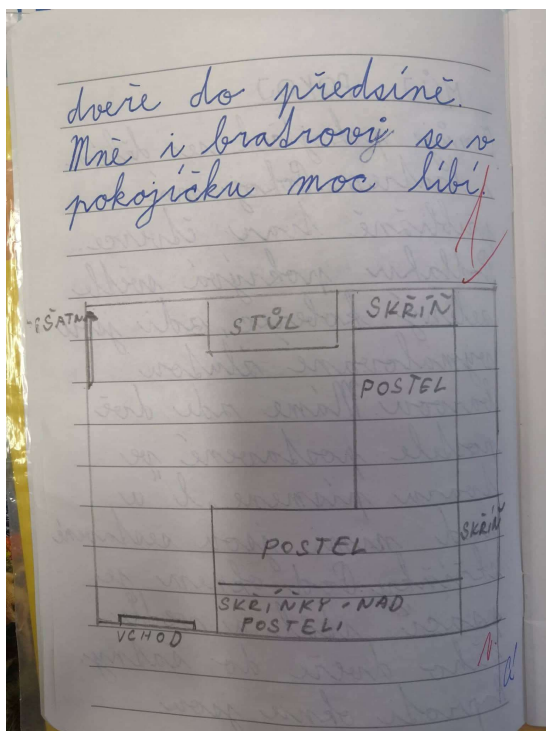 dveře do předsíně.
Mně i bratrový se v
pokojíčku moc líbí.
1
ŠATNA
STŮL
SKŘÍŇ
POSTEL
POSTEL
SKŘÍŇ
SKŘÍŇKY - NAD
POSTELI
VCHOD